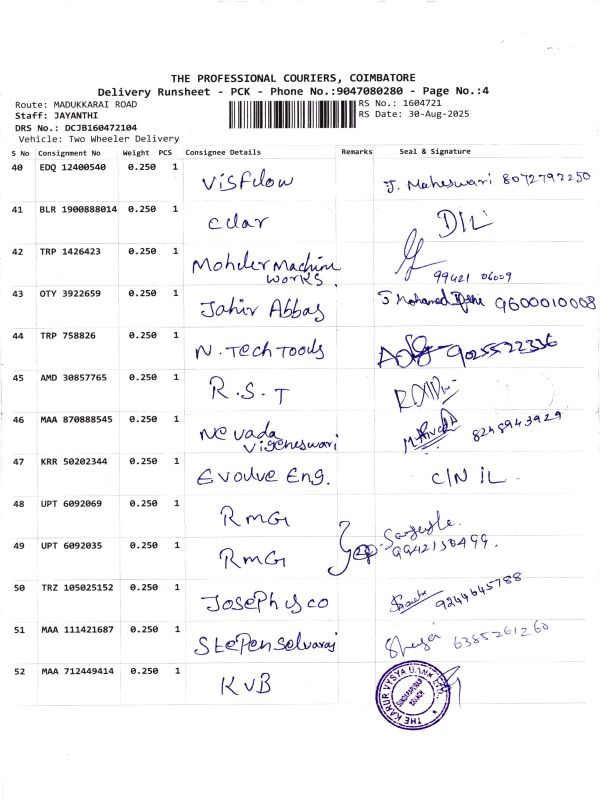 THE PROFESSIONAL COURIERS, COIMBATORE
Delivery Runsheet - PCK - Phone No.:9047080280 - Page No.:4
Route: MADUKKARAI ROAD
RS No.: 1604721
Staff: JAYANTHI
RS Date: 30-Aug-2025
DRS No.: DCJB160472104
Vehicle: Two Wheeler Delivery
S No Consignment No Weight PCS Consignee Details Remarks Seal & Signature
40 EDQ 12400540 0.250 1 Visflow J. Maheswari 8072792250
41 BLR 1900888014 0.250 1
42 TRP 1426423 0.250 1 Mohder Machine
works. 99421 06009
43 OTY 3922659 0.250 1 Jahir Abbas J Mohamed 9600010008
44 TRP 758826 0.250 1 N. Tech Tools 9025522336
45 AMD 30857765 0.250 1 R.S.T
46 MAA 870888545 0.250 1 Nevada
Vigeneswari 8248943929
47 KRR 50202344 0.250 1 Evolve Eng.
48 UPT 6092069 0.250 1 RMG
49 UPT 6092035 0.250 1 RMG 9942150499.
50 TRZ 105025152 0.250 1 Joseph & co 9244645788
51 MAA 111421687 0.250 1 Stepen Selvaraj 6385261260
52 MAA 712449414 0.250 1 KVB
THE KARUR VYSYA BANK LTD.
BRANCH